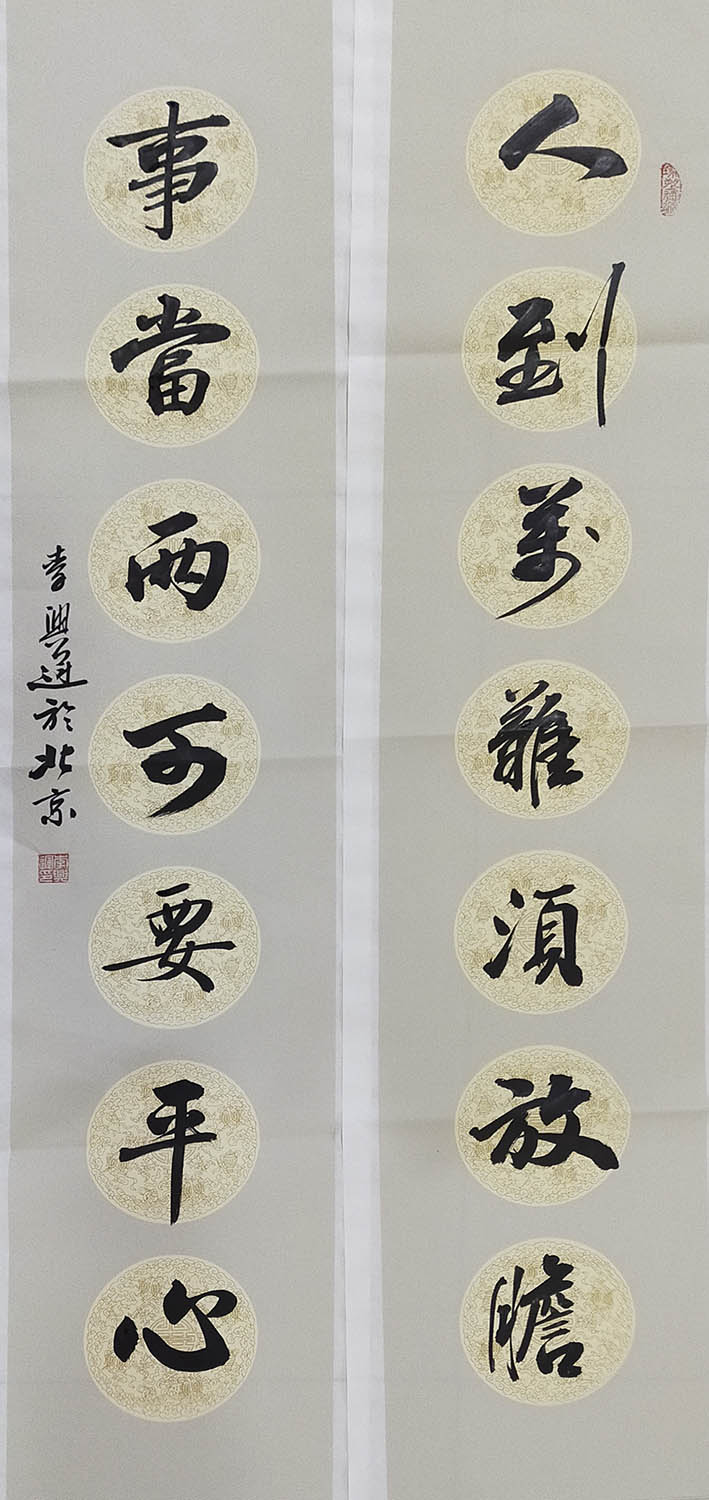 人到萬難須放膽
事當兩可要平心
李興於北京